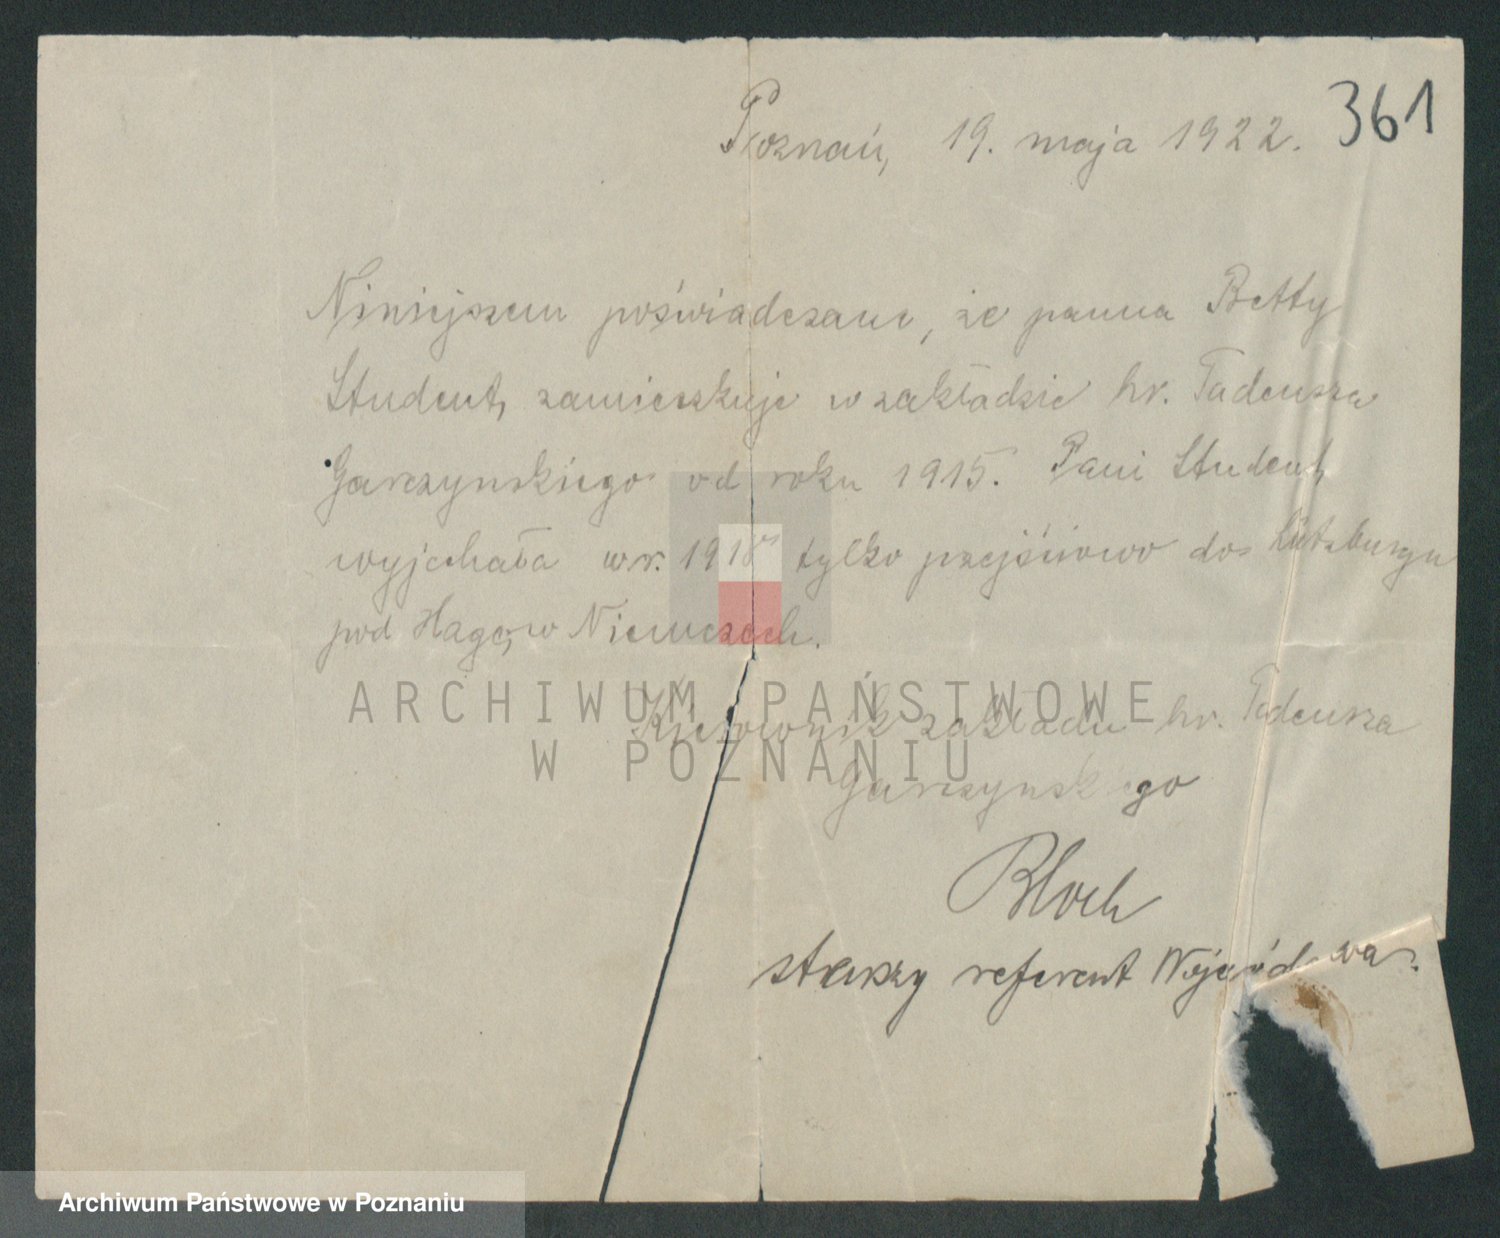 361
Poznań, 19. maja 1922.
Niniejszem poświadczam, że panna Betty
Student, zamieszkuje w zakładzie hr. Tadeusza
Garczynskiego od roku 1915. Pani Student
wyjechała w r. 1918 tylko przejściowo do Lützburgu
pod Hage, w Niemczech.
Kierownik zakładu hr. Tadeusza
Garczynskiego
Bloch
starszy referent
ARCHIWUM PAŃSTWOWE
W POZNANIU
Archiwum Państwowe w Poznaniu